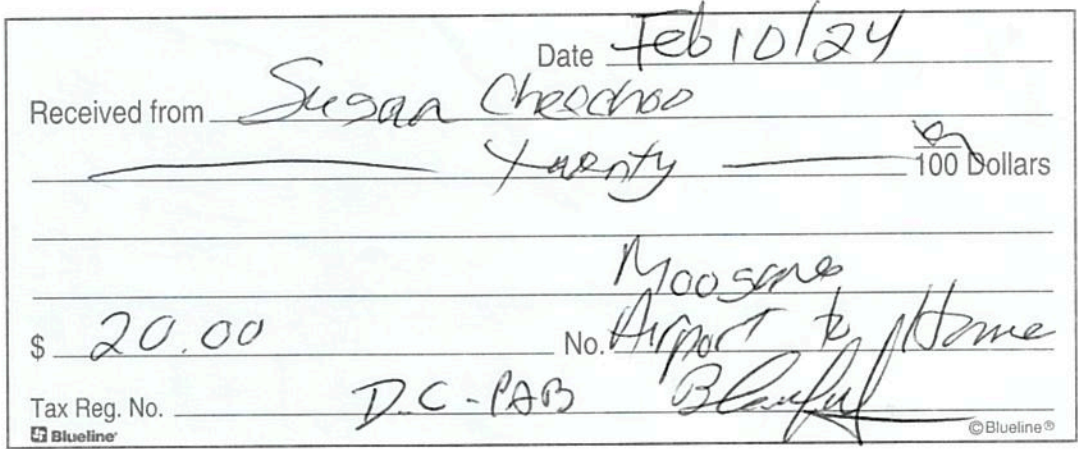 Date Feb 10/24
Received from Susan Cheechoo
Twenty 100 Dollars
Moosonee
$ 20.00 No. Airport to Home
Tax Reg. No. D.C-PAB
Blueline ©Blueline®